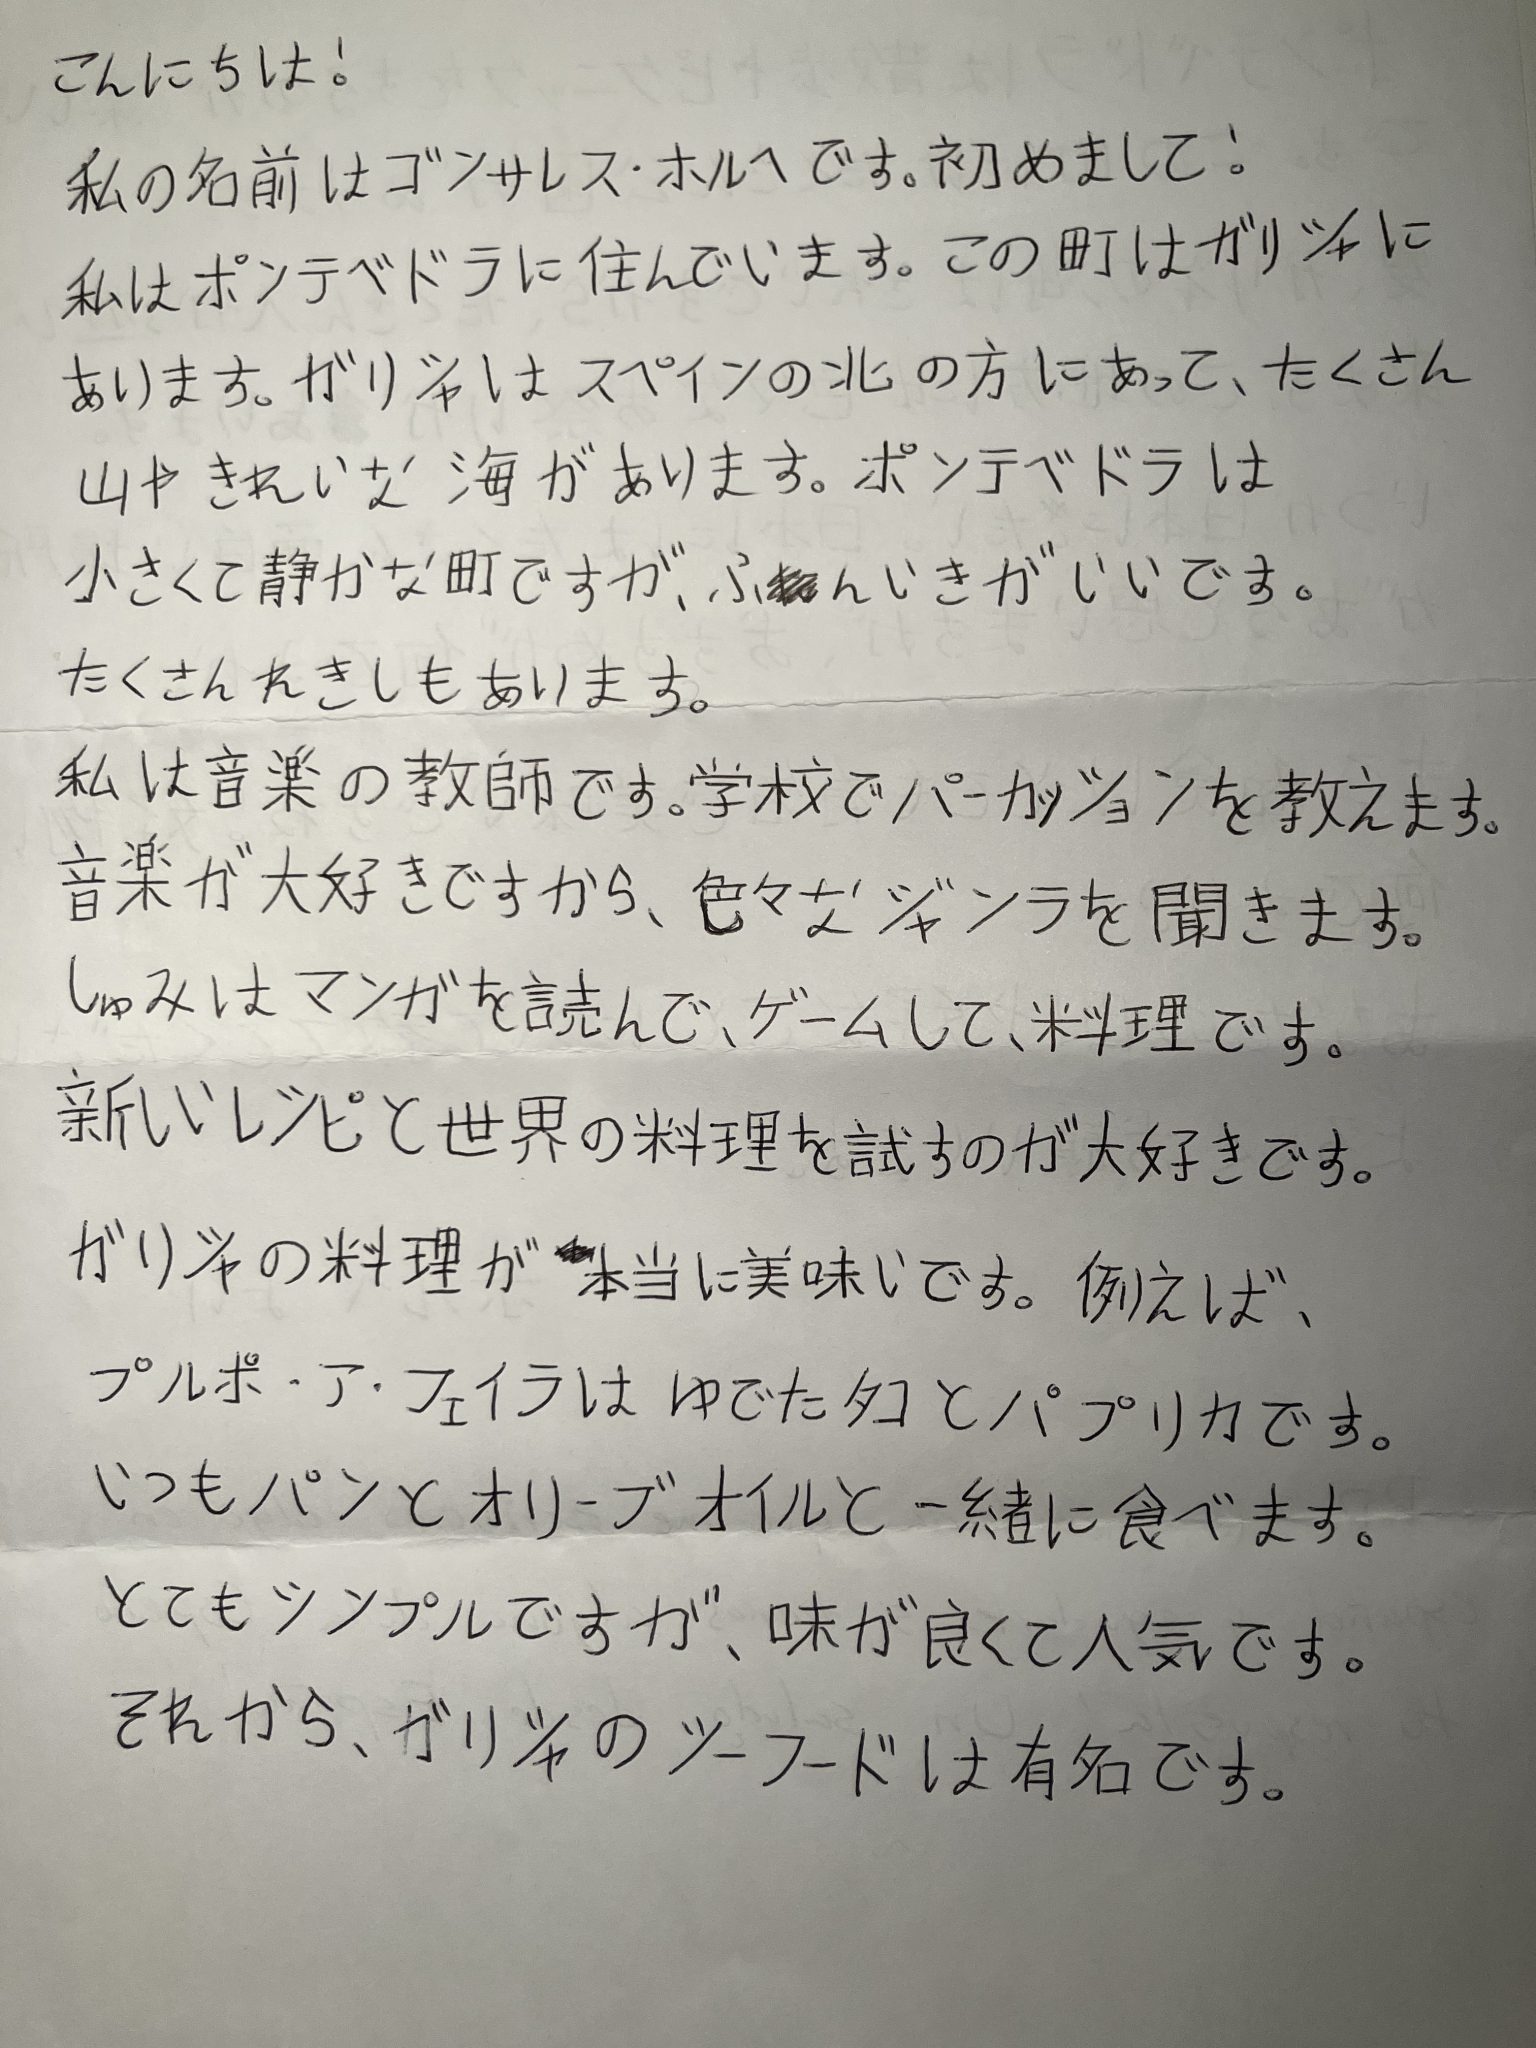 こんにちは!
私の名前はゴンサレス・ホルヘです。初めまして!
私はポンテベドラに住んでいます。この町はガリシャに
あります。ガリシャはスペインの北の方にあって、たくさん
山やきれいな海があります。ポンテベドラは
小さくて静かな町ですが、ふんいきがいいです。
たくさんれきしもあります。
私は音楽の教師です。学校でパーカッションを教えます。
音楽が大好きですから、色々なジャンラを聞きます。
しゅみはマンガを読んで、ゲームして、料理です。
新しいレシピと世界の料理を試すのが大好きです。
ガリシャの料理が本当に美味いです。例えば、
プルポ・ア・フェイラはゆでたタコとパプリカです。
いつもパンとオリーブオイルと一緒に食べます。
とてもシンプルですが、味が良くて人気です。
それから、ガリシャのシーフードは有名です。